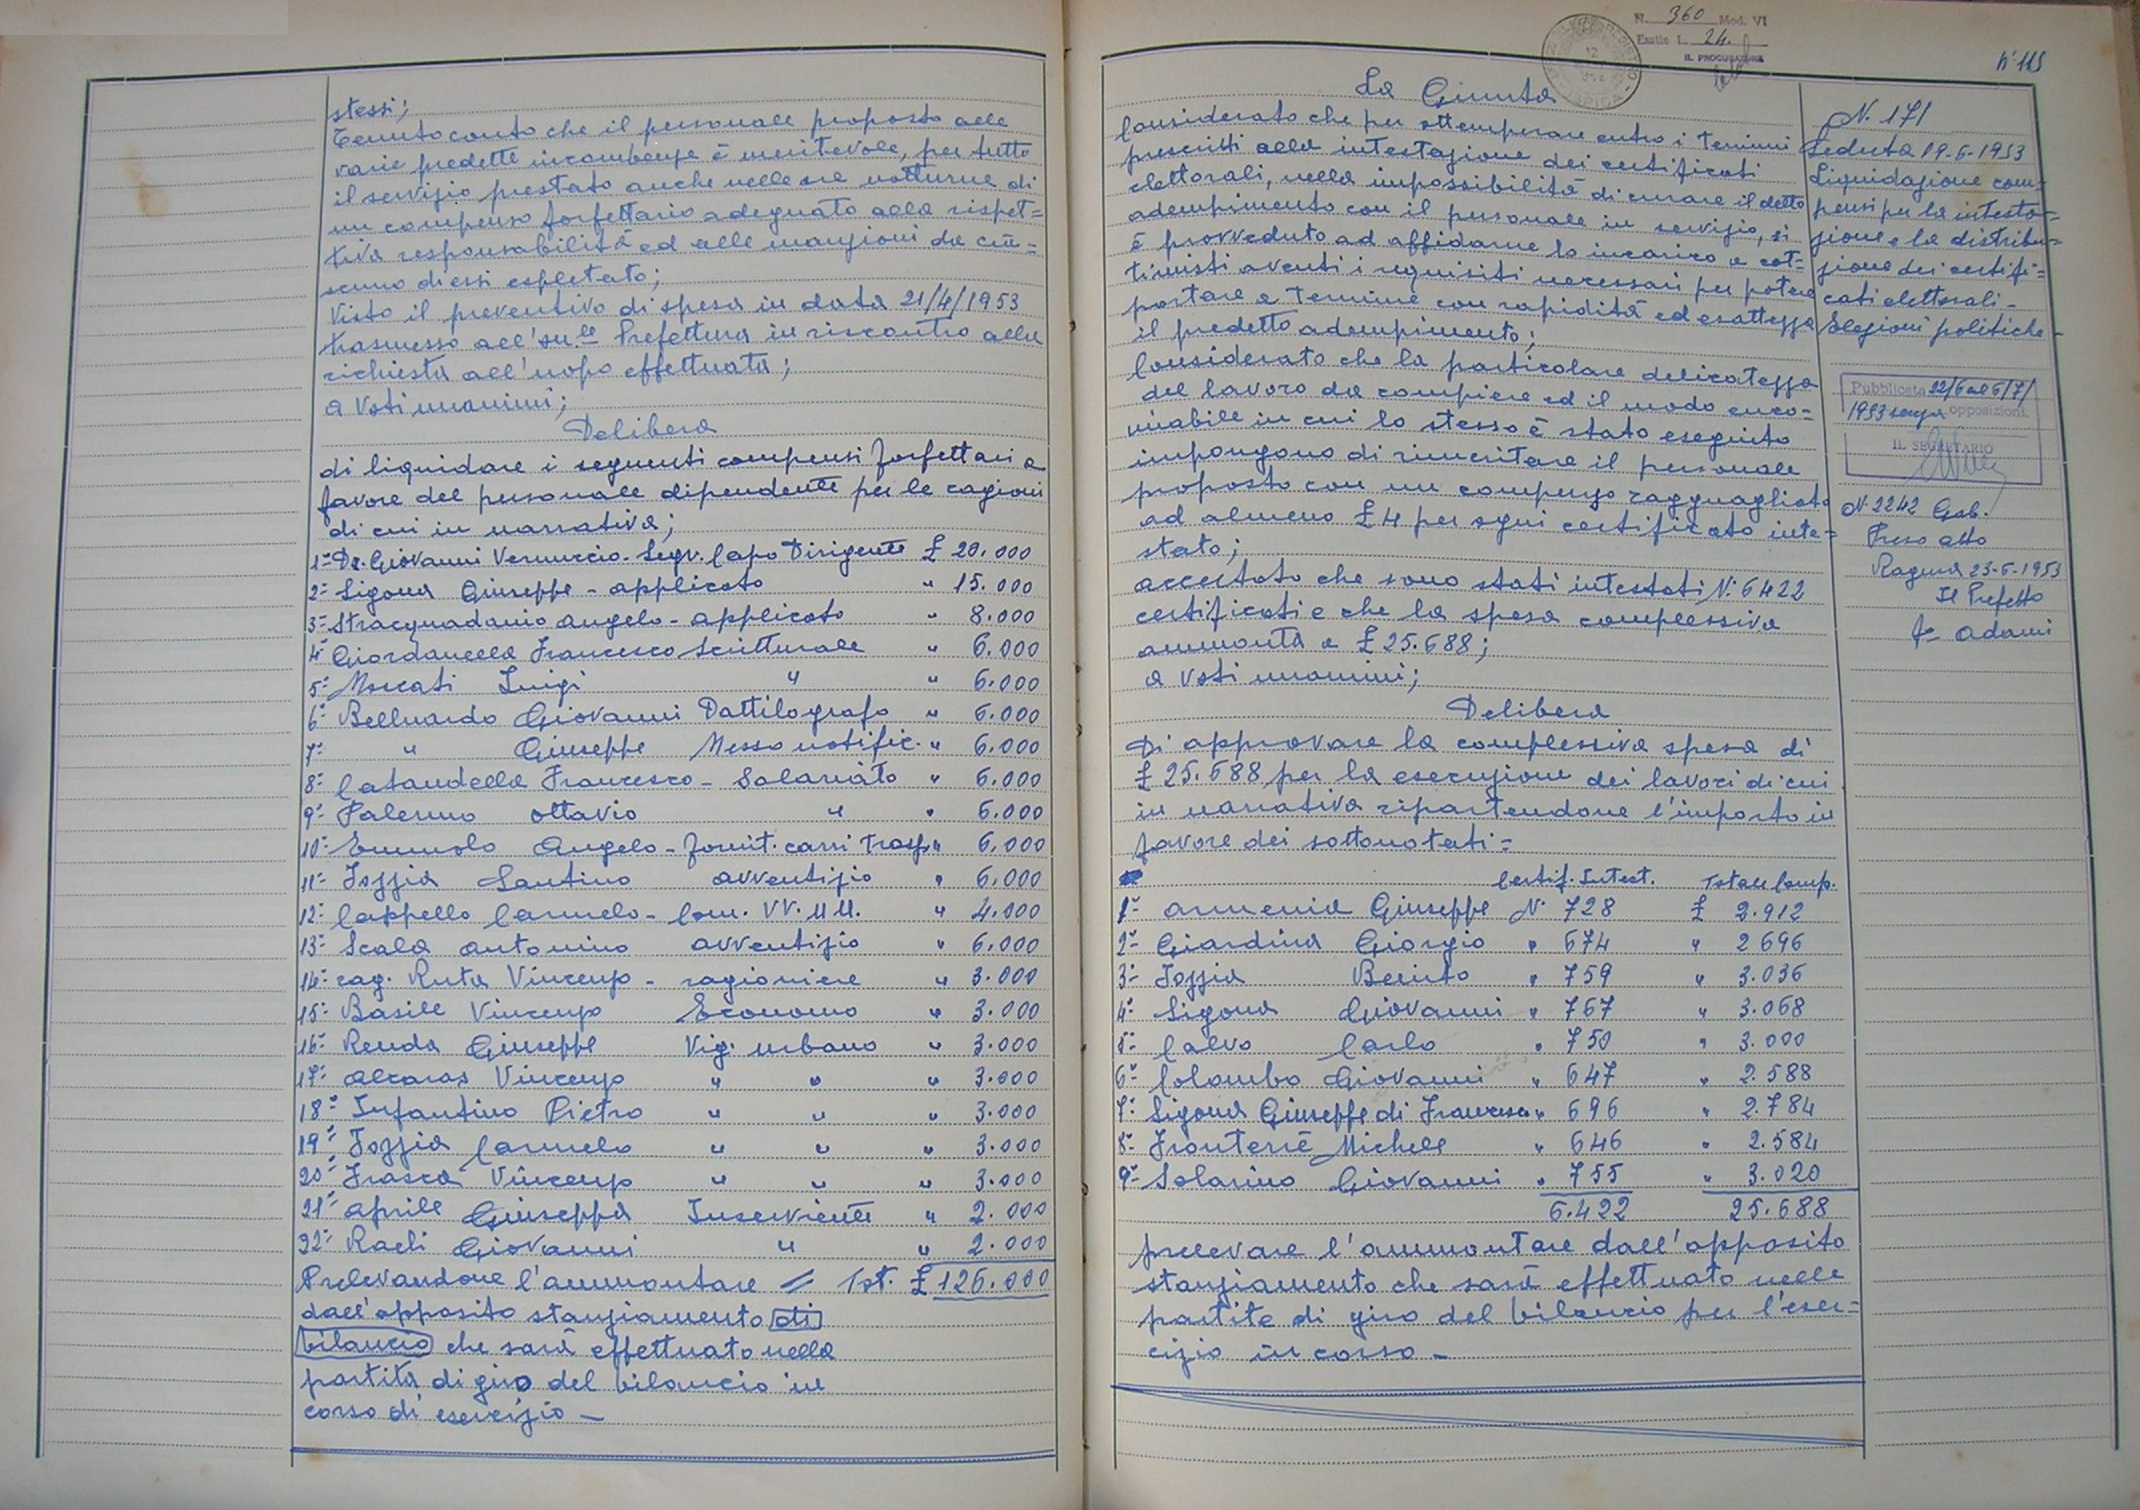 stessi;
Tenuto conto che il personale proposto alle
varie predette incombenze è meritevole, per tutto
il servizio prestato anche nelle ore notturne di
un compenso forfettario adeguato alla rispet=
tiva responsabilità ed alle mansioni da cia=
scuno di essi espletato;
Visto il preventivo di spesa in data 21/4/1953
trasmesso all'on.le Prefettura in riscontro alla
richiesta all'uopo effettuata;
a voti unanimi;
Delibera
di liquidare i seguenti compensi forfettari a
favore del personale dipendente per le cagioni
di cui in narrativa;
1°- Dr. Giovanni Vernuccio - Segr. Capo Dirigente £ 20.000
2°- Sigona Giuseppe - applicato " 15.000
3°- Stracquadanio Angelo - applicato " 8.000
4° Giordanella Francesco Scritturale " 6.000
5°- Moscati Luigi " " 6.000
6°- Belluardo Giovanni Dattilografo " 6.000
7°- " Giuseppe Messo notific. " 6.000
8°- Cataudella Francesco - Salariato " 6.000
9°- Palermo Ottavio " " 6.000
10°- Emmolo Angelo - Fornit. carri trasp. " 6.000
11°- Iozzia Santino avventizio " 6.000
12°- Cappello Carmelo - Com. VV. UU. " 4.000
13°- Scala Antonino avventizio " 6.000
14°- rag. Ruta Vincenzo - ragioniere " 3.000
15°- Basile Vincenzo Economo " 3.000
16°- Renda Giuseppe Vig. urbano " 3.000
17°- Alcaras Vincenzo " " " 3.000
18° Infantino Pietro " " " 3.000
19°- Iozzia Carmelo " " " 3.000
20°- Frasca Vincenzo " " " 3.000
21°- Aprile Giuseppa Inserviente " 2.000
22°- Raeli Giovanni " " 2.000
Prelevandone l'ammontare = Tot. £ 126.000
dall'opposito stanziamento di
bilancio che sarà effettuato nella
partita di giro del bilancio in
corso di esercizio -
N. 360 Mod. VI
Esatte L. 24.
IL PROCURATORE
12
ISPICA
N° 115
La Giunta
Considerato che per ottemperare entro i termini
prescritti alla intestazione dei certificati
elettorali, nella impossibilità di curare il detto
adempimento con il personale in servizio, si
è provveduto ad affidarne lo incarico a cot=
timisti aventi i requisiti necessari per potere
portare a termine con rapidità ed esattezza
il predetto adempimento;
Considerato che la particolare delicatezza
del lavoro da compiere ed il modo enco=
miabile in cui lo stesso è stato eseguito
impongono di rimeritare il personale
proposto con un compenso ragguagliato
ad almeno £ 4 per ogni certificato inte=
stato;
accertato che sono stati intestati N. 6422
certificati e che la spesa complessiva
ammonta a £ 25.688;
a voti unanimi;
Delibera
Di approvare la complessiva spesa di
£ 25.688 per la esecuzione dei lavori di cui
in narrativa ripartendone l'importo in
favore dei sottonotati =
Certif. Intest. Totale Comp.
1°- Armenia Giuseppe N. 728 £ 2.912
2°- Giardina Giorgio " 674 " 2696
3°- Iozzia Benito " 759 " 3.036
4°- Sigona Giovanni " 767 " 3.068
5°- Calvo Carlo " 750 " 3.000
6°- Colombo Giovanni " 647 " 2.588
7°- Sigona Giuseppe di Francesco " 696 " 2.784
8°- Fronterrè Michele " 646 " 2.584
9°- Solarino Giovanni " 755 " 3.020
6.422 25.688
prelevare l'ammontare dall'opposito
stanziamento che sarà effettuato nelle
partite di giro del bilancio per l'eser=
cizio in corso -
N. 171
Seduta 19-6-1953
Liquidazione com=
pensi per la intesta=
zione e la distribu=
zione dei certifi=
cati elettorali -
Elezioni politiche -
Pubblicata 22/6 al 6/7/
1953 senza opposizioni.
IL SEGRETARIO
N. 2242 Gab.
Preso atto
Ragusa 23-6-1953
Il Prefetto
fo Adami